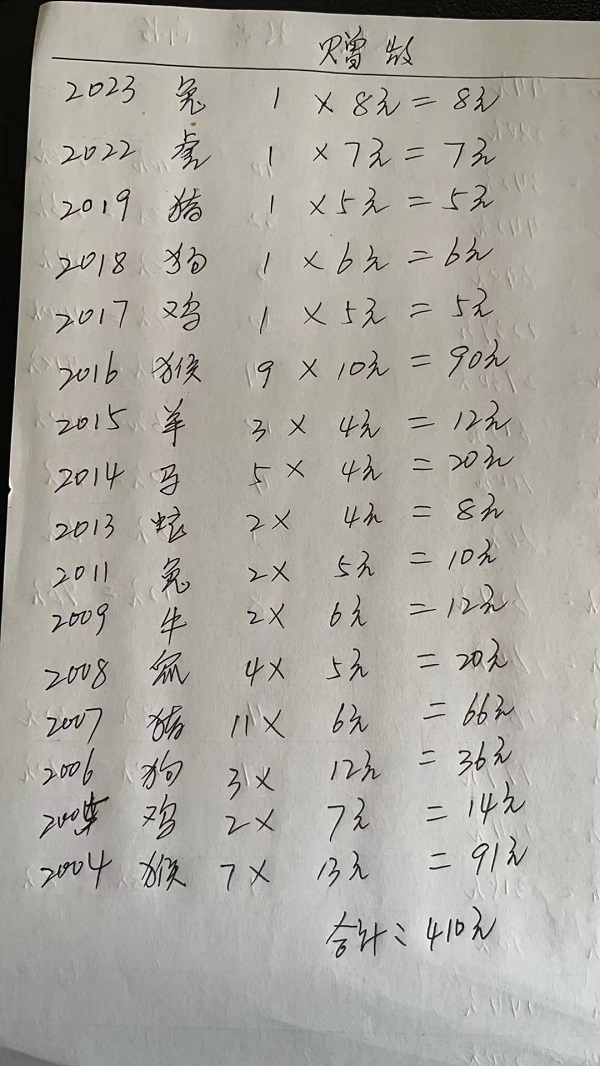 赠版
2023 兔 1 × 8元 = 8元
2022 虎 1 × 7元 = 7元
2019 猪 1 × 5元 = 5元
2018 狗 1 × 6元 = 6元
2017 鸡 1 × 5元 = 5元
2016 猴 9 × 10元 = 90元
2015 羊 3 × 4元 = 12元
2014 马 5 × 4元 = 20元
2013 蛇 2 × 4元 = 8元
2011 兔 2 × 5元 = 10元
2009 牛 2 × 6元 = 12元
2008 鼠 4 × 5元 = 20元
2007 猪 11 × 6元 = 66元
2006 狗 3 × 12元 = 36元
2005 鸡 2 × 7元 = 14元
2004 猴 7 × 13元 = 91元
合计: 410元